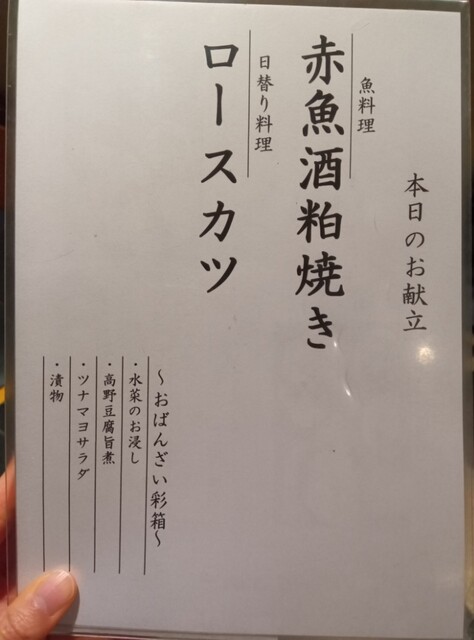 本日のお献立
魚料理
赤魚酒粕焼き
日替り料理
ロースカツ
～おばんざい彩箱～
・水菜のお浸し
・高野豆腐旨煮
・ツナマヨサラダ
・漬物